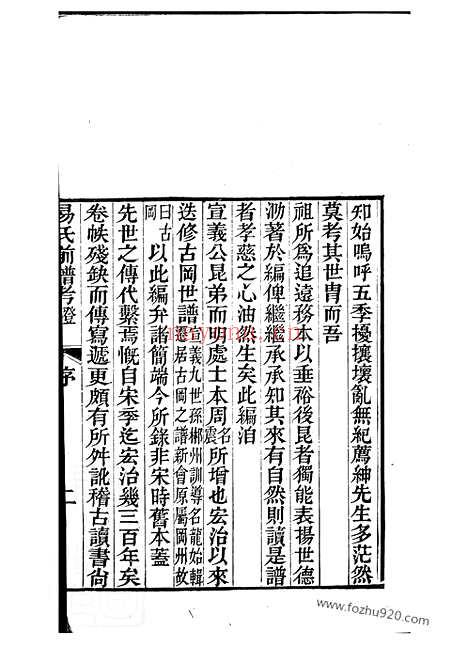 知始嗚呼五季擾攘壞亂無紀薦紳先生多茫然
莫考其世冑而吾
祖所爲追遠務本以垂裕後昆者獨能表揚世德
泐著於編俾繼繼承承知其來有自然則讀是譜
者孝慈之心油然生矣此編洎
宣義公昆弟而明處士本周名震所增也宏治以來
迭修古岡世譜義九世孫郴州訓導名龍始輯居古岡之譜新會原屬岡州故
曰古岡以此編弁諸簡端今所錄非宋時舊本蓋
先世之傳代繫焉慨自宋季迄宏治幾三百年矣
卷帙殘缺而傳寫遞更頗有所舛訛稽古讀書尙
易氏前譜考證
序
二
www.fozhu920.com